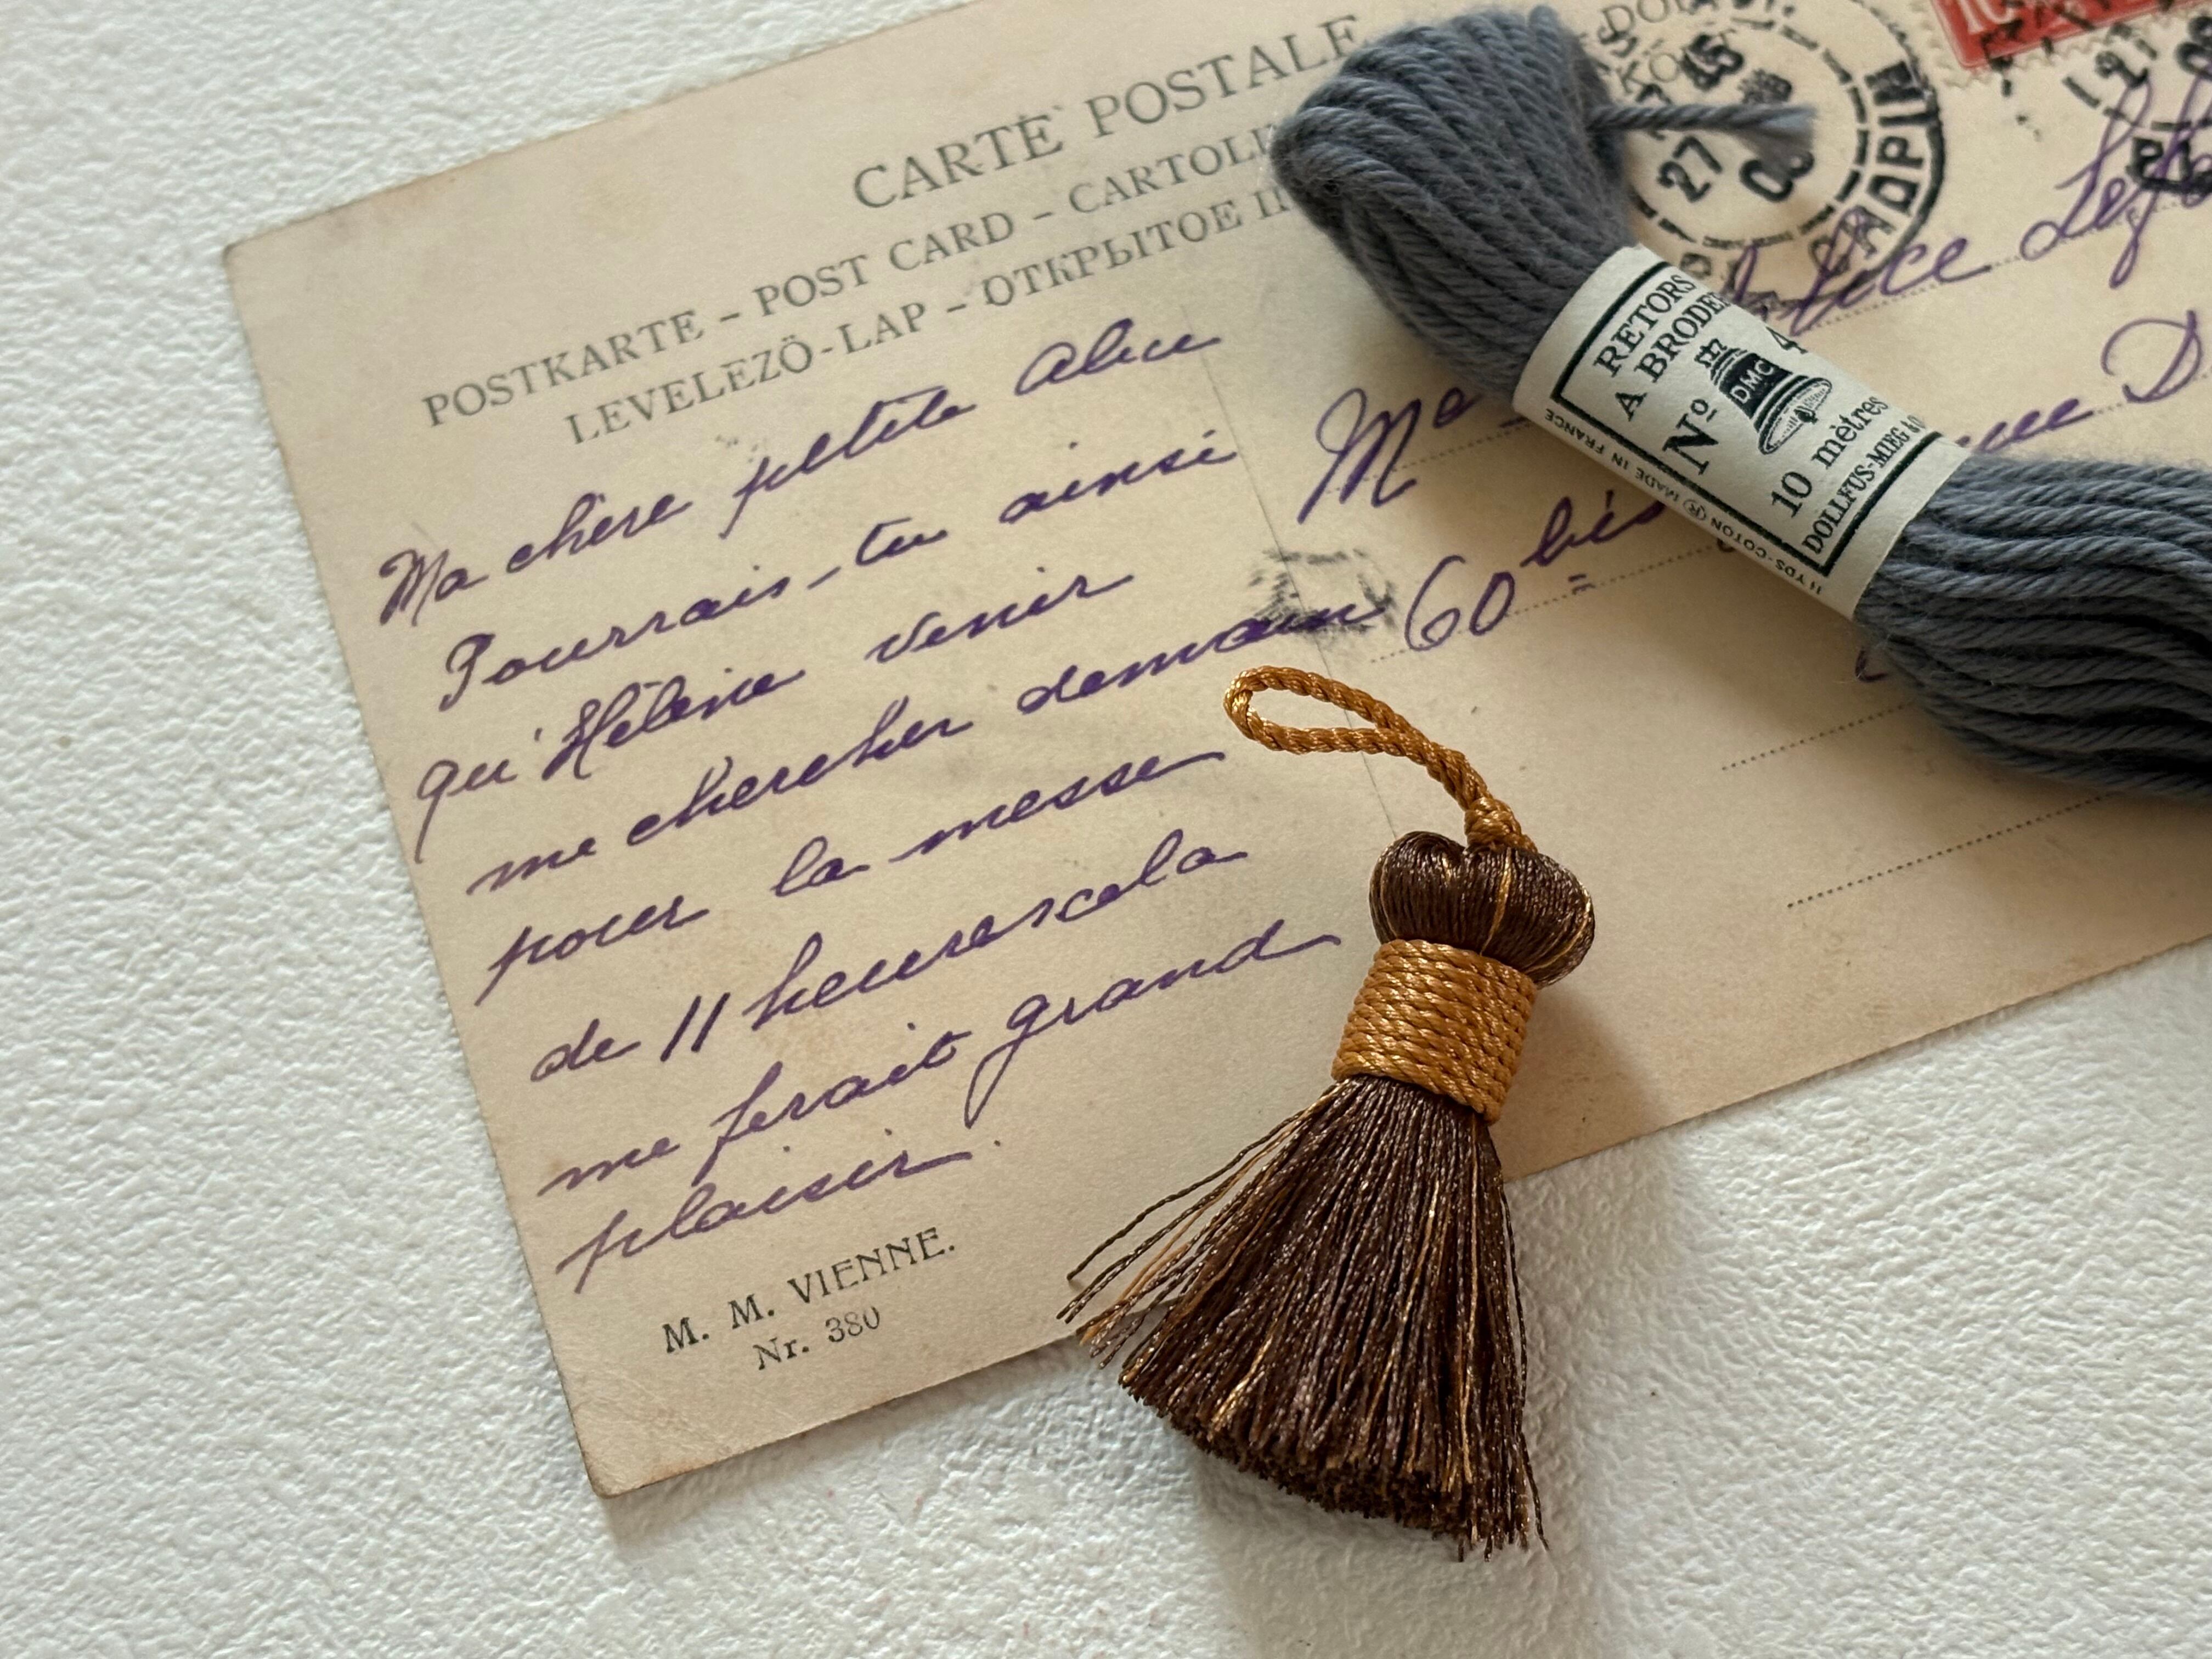 CARTE POSTALE
POSTKARTE - POST CARD -
LEVELEZÖ-LAP - ОТКРЫТОЕ
Ma chère petite Alice
Pourrais-tu ainsi
qu'Hélène venir
me chercher demain
pour la messe
de 11 heures cela
me ferait grand
plaisir.
M. M. VIENNE.
Nr. 380
27
60 bis
RETORS
A BRODER
No 4
DMC
10 mètres
DOLLFUS-MIEG &
11 YDS-COTTON ® MADE IN FRANCE
10